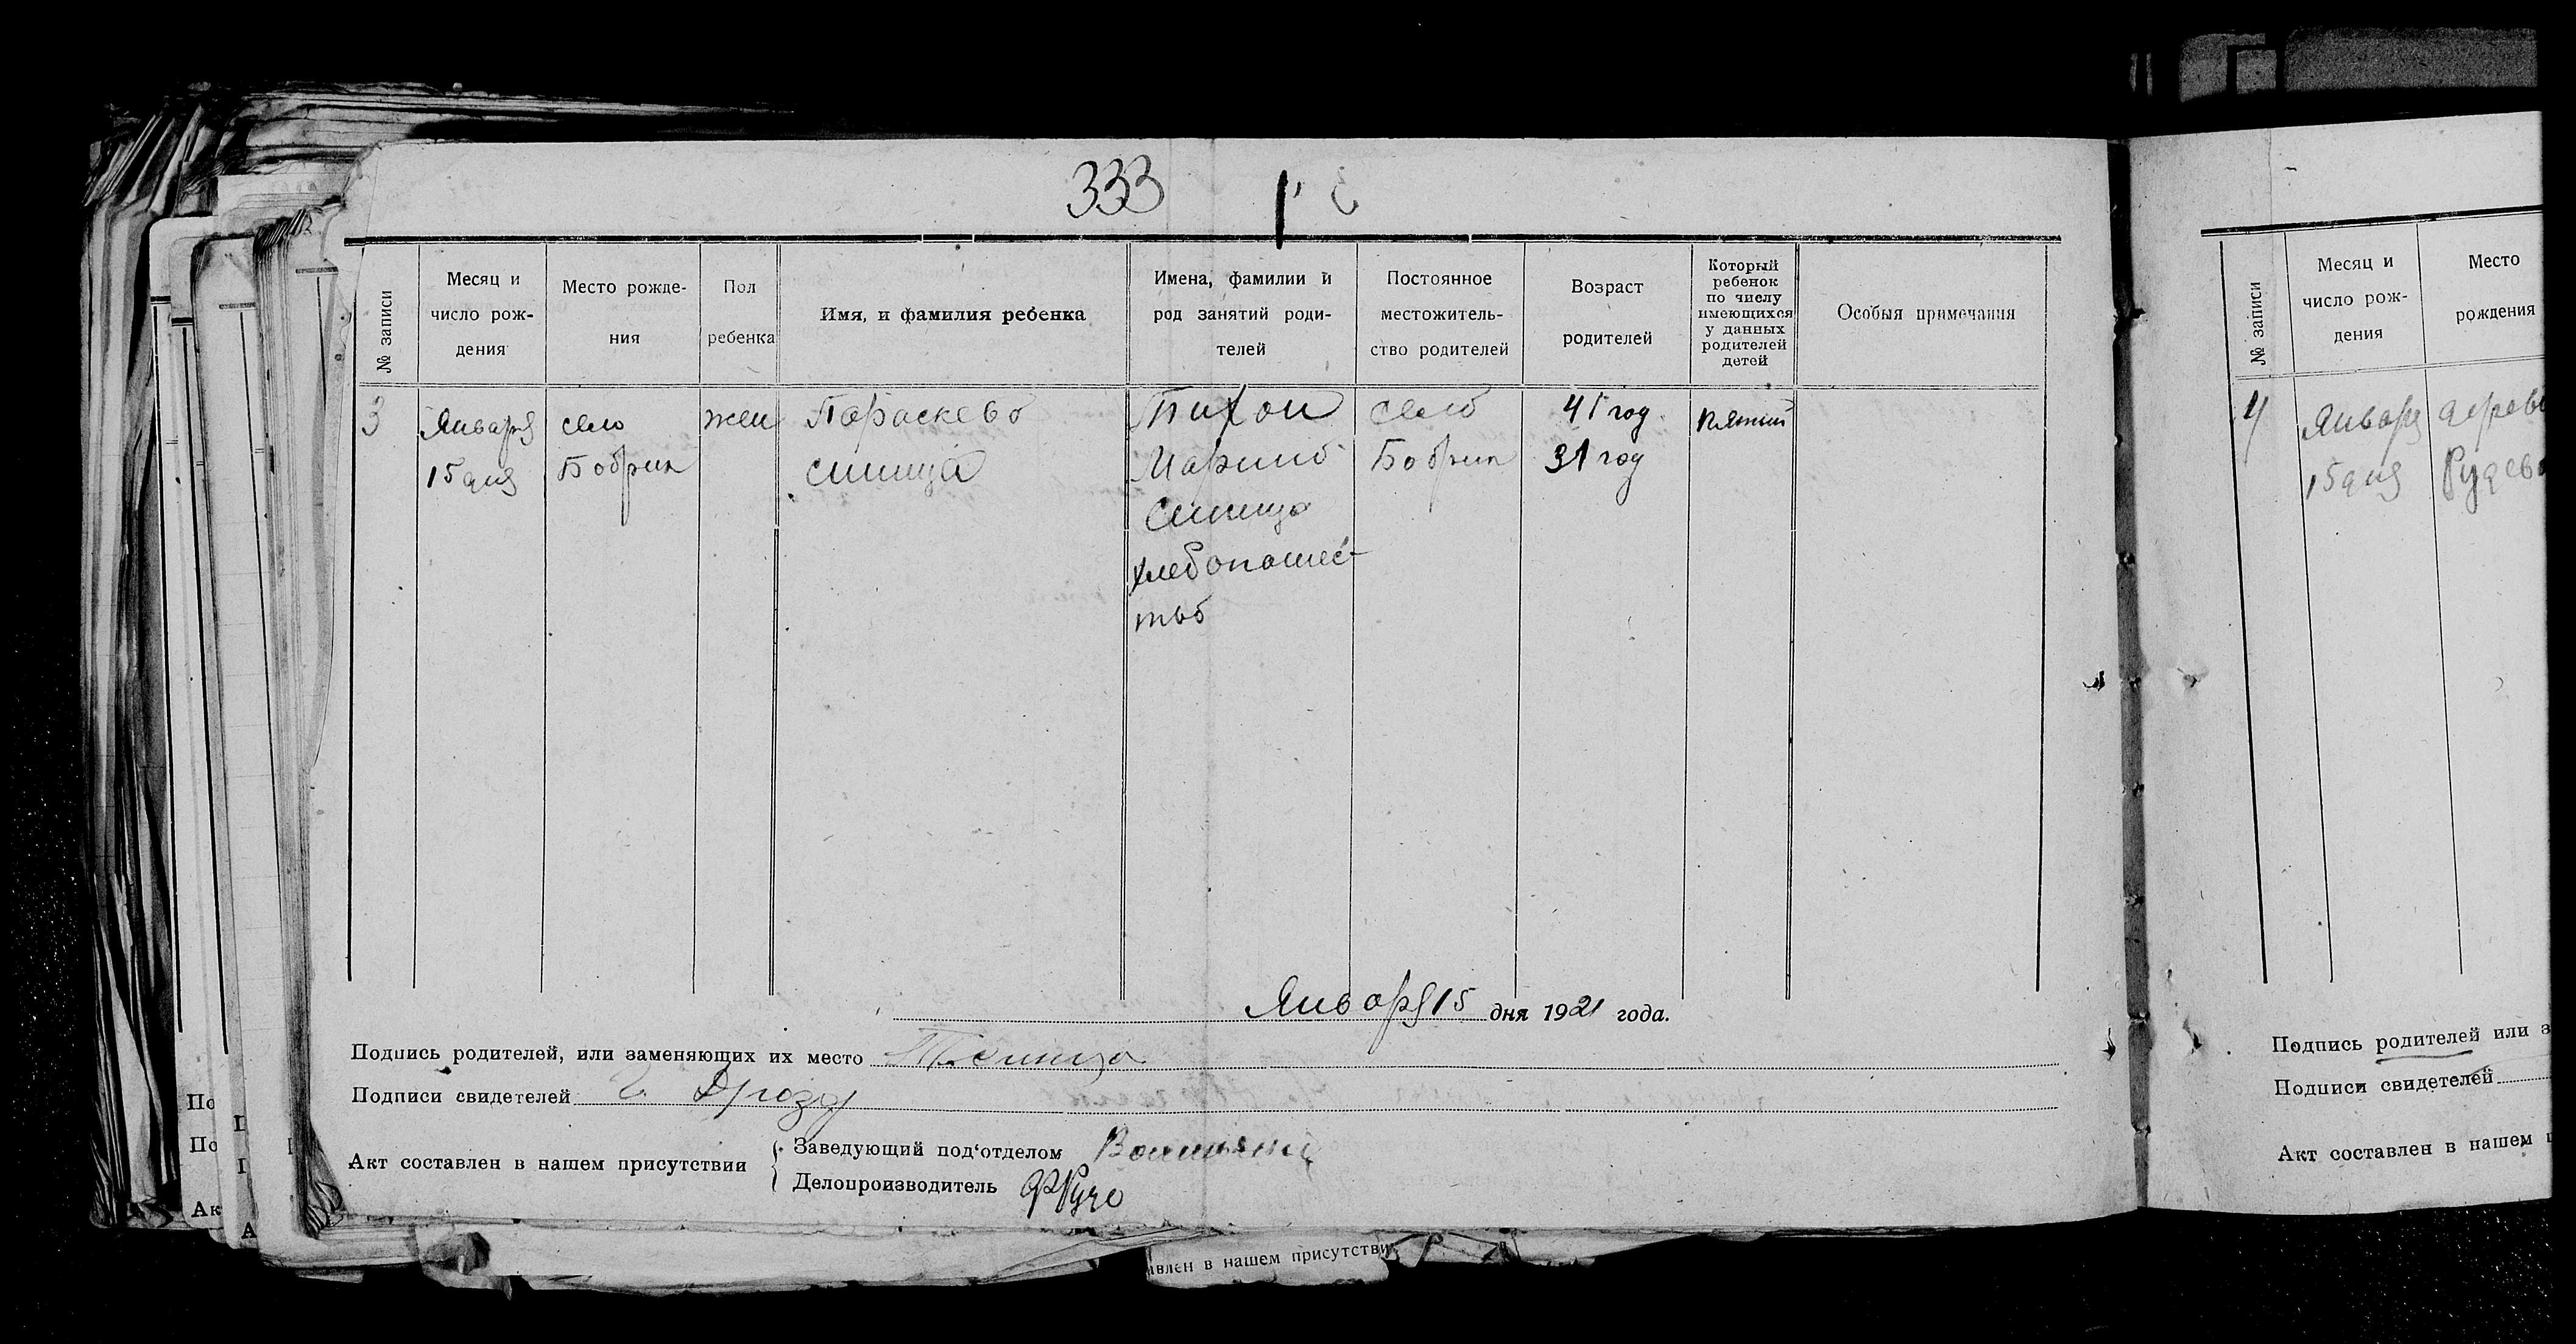 333
№ записи
Месяц и число рож-дения
Место рожде-ния
Пол ребенка
Имя, и фамилия ребенка
Имена, фамилии и род занятий роди-телей
Постоянное местожитель-ство родителей
Возраст родителей
Который ребенок по числу имеющихся у данных родителей детей
Особыя примечания
3
Января
15 дня
село
Бобрик
жен
Параскева
синица
Тихон
Марина
Синица
хлебопашес-
тво
село
Бобрик
41 год
31 год
пятый
Января 15 дня 1921 года.
Подпись родителей, или заменяющих их место Т Синица
Подписи свидетелей Дрозд
Акт составлен в нашем присутствии
Заведующий под'отделом
Делопроизводитель
№ записи
Месяц и число рож-дения
Место рождения
4
Января
15 дня
дерев
Рудев
Подпись родителей или з
Подписи свидетелей
Акт составлен в нашем п
По
По
Ак
А
авлен в нашем присутстви